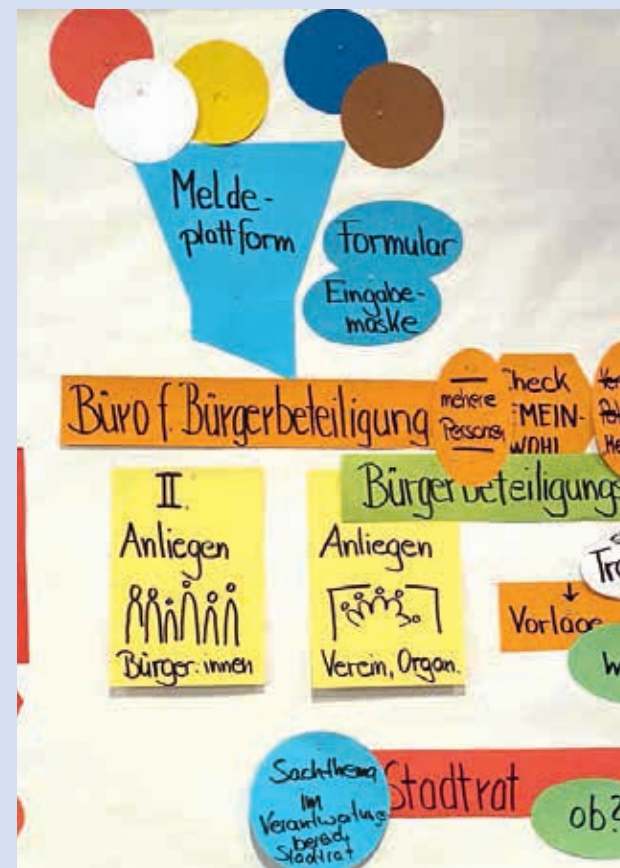 Melde-
plattform
Formular
Eingabe-
maske
Büro f. Bürgerbeteiligung
mehere
Personen
Check
MEIN-
WOHL
Bürgerbeteiligungs
II.
Anliegen
Bürger:innen
Anliegen
Verein, Organ.
Vorlage
Sachthema
im
Verantwortungs
bereich
Stadtrat
Stadtrat
ob?